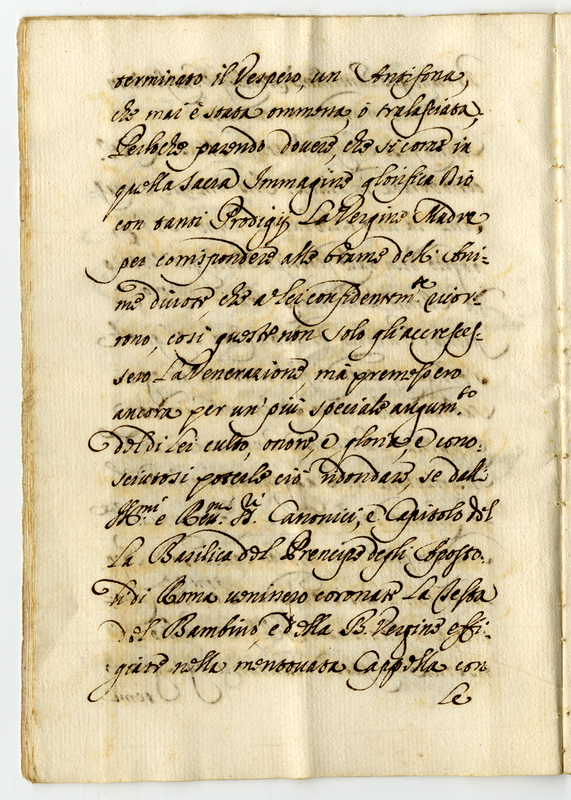 terminato il Vespero, un Antifona,
che mai è stata ommessa, ò tralasciata,
Perloche parendo dovere, che si come in
quella Sacra Immagine glorifica Dio
con tanti Prodigij La Vergine Madre,
per corrispondere alle brame dell' Ani=
me divote, che à lei confidentem.te ricor=
rono, così queste non solo gli accrescer=
sero La Venerazione, mà premessero
ancora per un' più speciale augum.to
del di lei culto, onore, è gloria, è cono=
sciutosi poterle ciò ridondare, se dall'
Ill.mi e Rev.mi SS.ri Canonici, è Capitolo del
La Basilica del Prencipe degli Aposto=
li di Roma venissero coronate La Testa
del Bambino, è della B. Vergine effi=
giate nella mentovata Cappella con
le